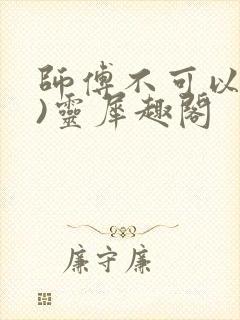 師傅不可以
)靈犀趣閣
廉守廉